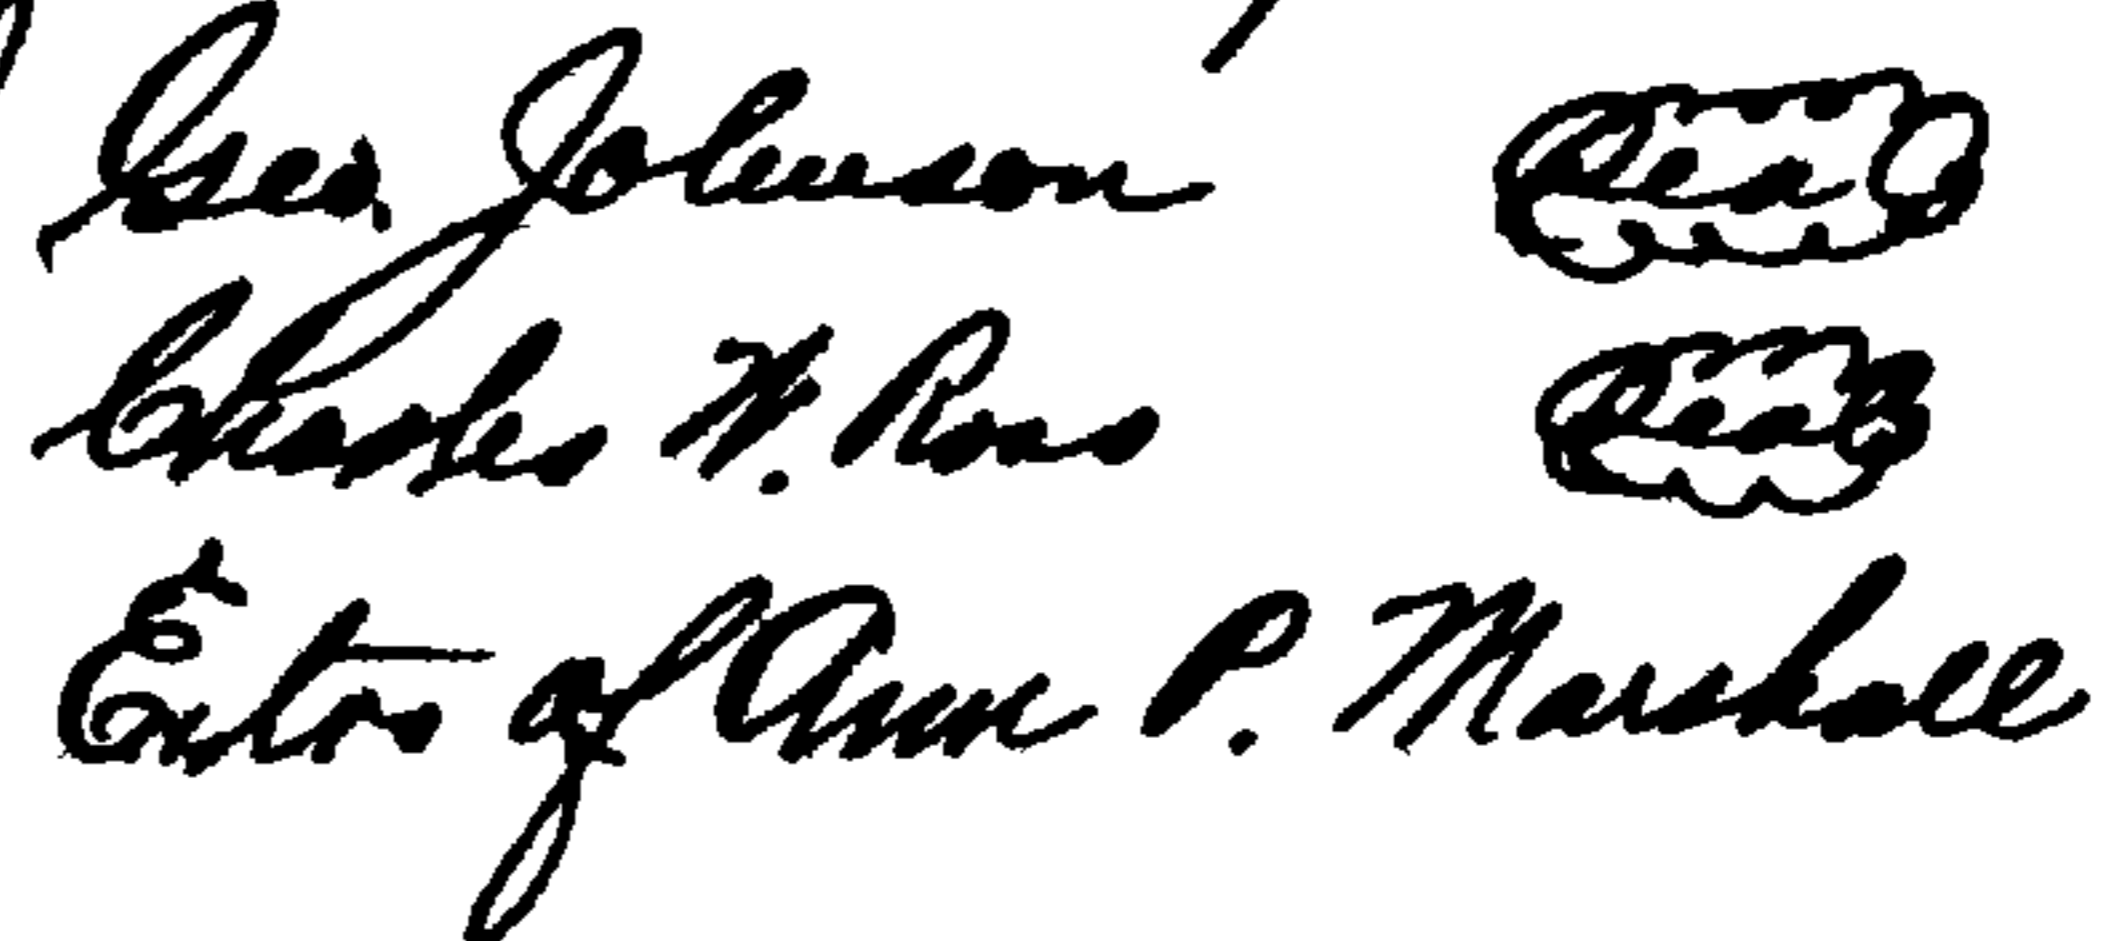 Geo. Johnson Seal
Charles W. Ross Seal
Extrs of Ann P. Marshall